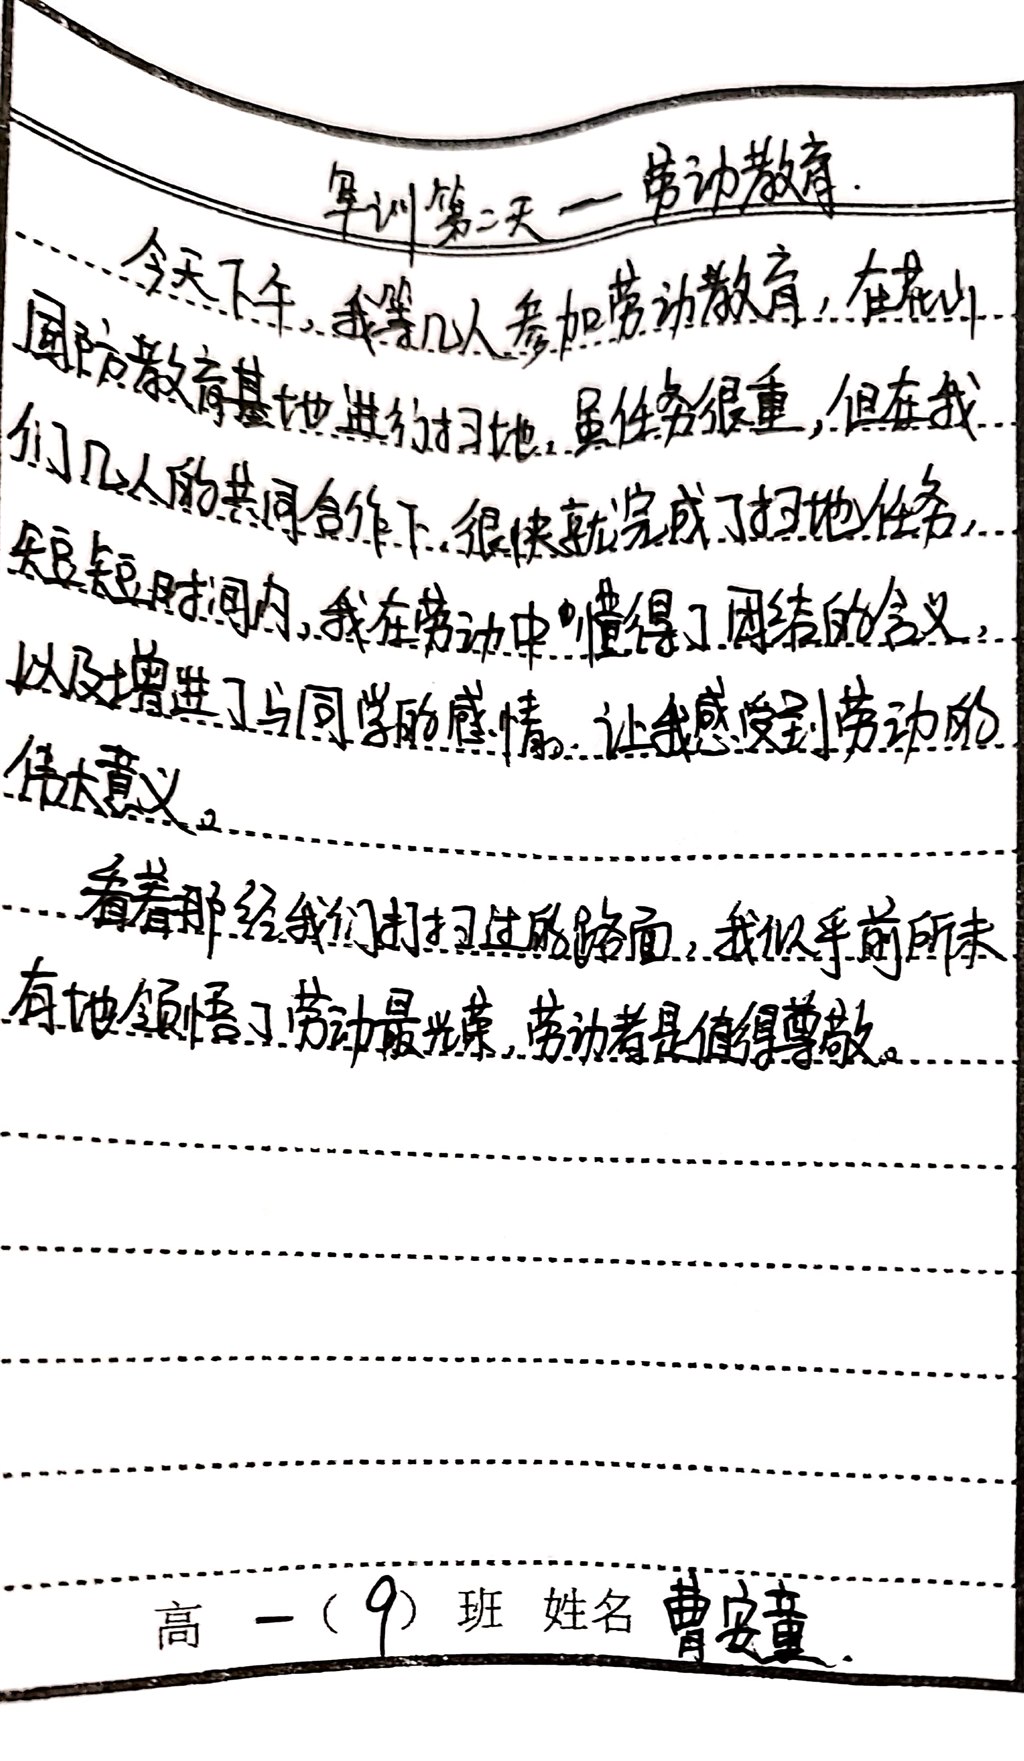 军训第二天一劳动教育.
今天下午,我等几人参加劳动教育,在花山
国防教育基地进行扫地.虽任务很重,但在我
们几人的共同合作下.很快就完成了扫地任务,
短短时间内,我在劳动中懂得了团结的含义,
以及增进了与同学的感情。让我感受到劳动的
伟大意义。
看着那经我们打扫过的路面,我似乎前所未
有地领悟了劳动最光荣,劳动者是值得尊敬。
高一(9)班 姓名 曹安童.